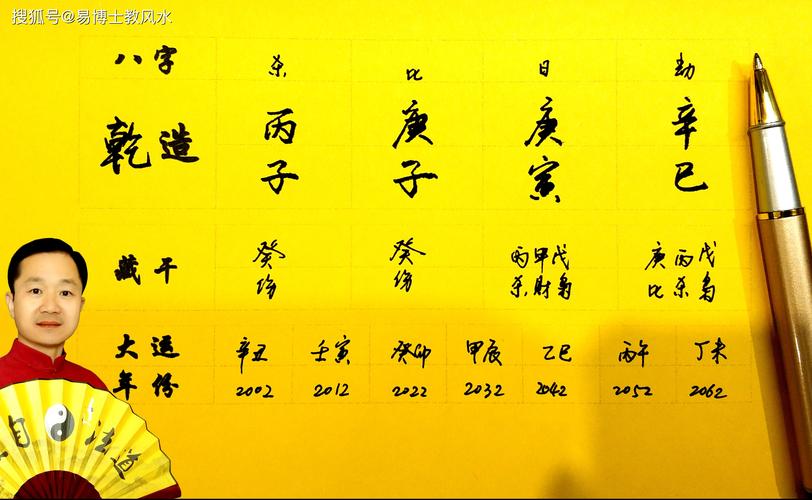 搜狐号@易博士教风水
八字 杀 比 日 劫
乾造 丙 庚 庚 辛
子 子 寅 巳
藏干 癸 癸 丙甲戊 庚丙戊
伤 伤 杀财枭 比杀枭
大运 辛丑 壬寅 癸卯 甲辰 乙巳 丙午 丁未
年份 2002 2012 2022 2032 2042 2052 2062
自 法 道